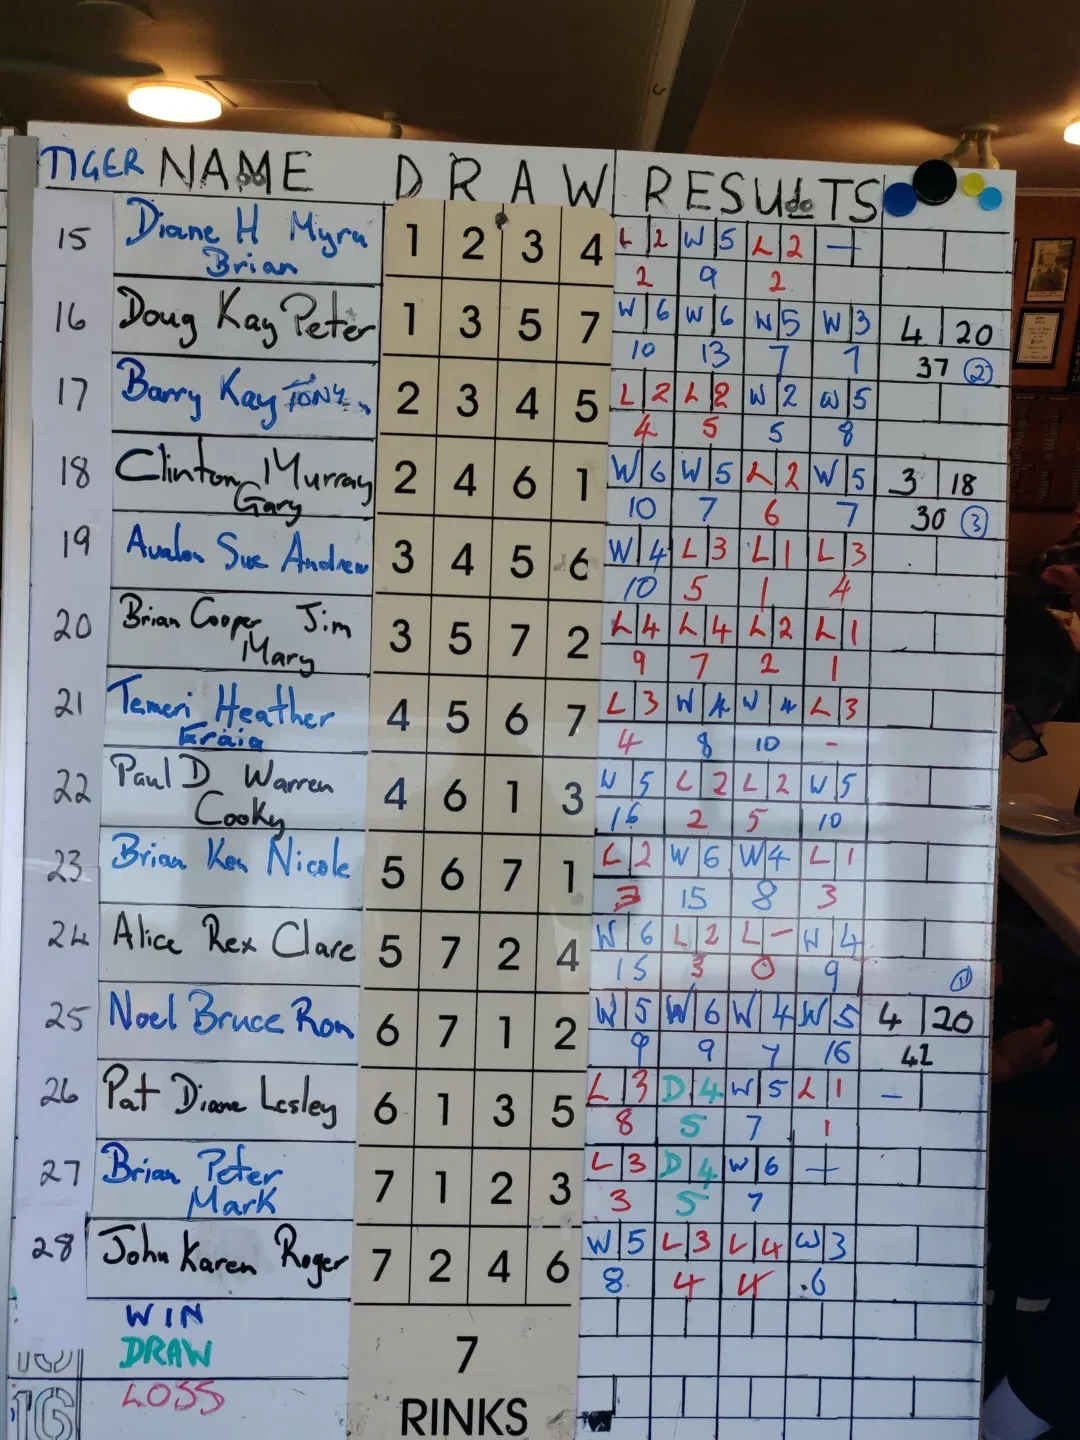 TIGER NAME DRAW RESULTS
15 Diane H Myra 1 2 3 4 L 2 W 5 L 2 —
Brian 2 9 2
16 Doug Kay Peter 1 3 5 7 W 6 W 6 W 5 W 3 4 20
10 13 7 7 37 2
17 Barry Kay TONY 2 3 4 5 L 2 L 2 W 2 W 5
4 5 5 8
18 Clinton Murray 2 4 6 1 W 6 W 5 L 2 W 5 3 18
Gary 10 7 6 7 30 3
19 Avalon Sue Andrew 3 4 5 6 W 4 L 3 L 1 L 3
10 5 1 4
20 Brian Cooper Jim 3 5 7 2 L 4 L 4 L 2 L 1
Mary 9 7 2 1
21 Temeri Heather 4 5 6 7 L 3 W 4 W 4 L 3
4 8 10 -
22 Paul D Warren 4 6 1 3 W 5 L 2 L 2 W 5
Cooky 16 2 5 10
23 Brian Ken Nicole 5 6 7 1 L 2 W 6 W 4 L 1
3 15 8 3
24 Alice Rex Clare 5 7 2 4 W 6 L 2 L — W 4
15 3 0 9 1
25 Noel Bruce Ron 6 7 1 2 W 5 W 6 W 4 W 5 4 20
9 9 7 16
26 Pat Diane Lesley 6 1 3 5 L 3 D 4 W 5 L 1 —
8 5 7 1
27 Brian Peter 7 1 2 3 L 3 D 4 W 6 —
Mark 3 5 7
28 John Karen Roger 7 2 4 6 W 5 L 3 L 4 W 3
8 4 4 .6
WIN
DRAW 7
16 LOSS RINKS